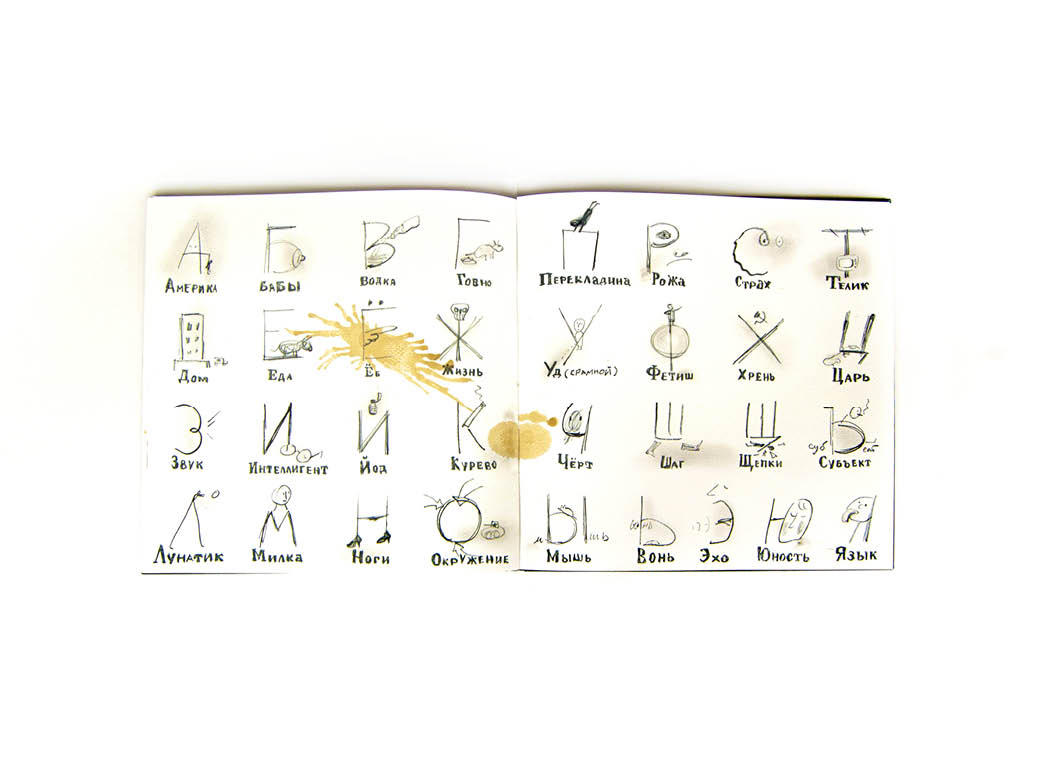 А Б В Г
Америка Бабы Водка Говно
Д Е Ё Ж
Дом Еда Ёб Жизнь
З И Й К
Звук Интеллигент Йод Курево
Л М Н О
Лунатик Милка Ноги Окружение
П Р С Т
Перекладина Рожа Страх Телик
У Ф Х Ц
Уд (срамной) Фетиш Хрень Царь
Ч Ш Щ суб Ъ ект
Чёрт Шаг Щепки Субъект
м Ы шь Ь Э Ю Я
Мышь Вонь Эхо Юность Язык